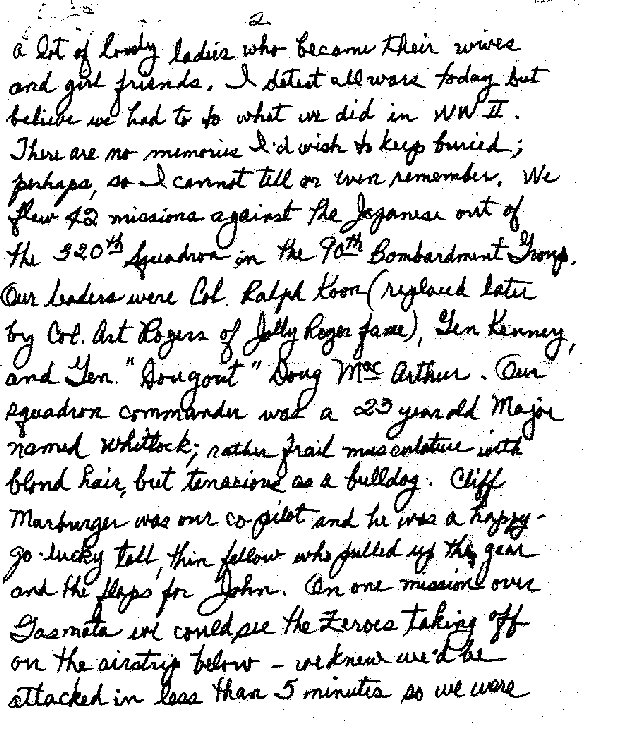 2.
a lot of lovely ladies who became their wives
and girl friends. I detest all wars today but
believe we had to do what we did in WW II.
There are no memories I'd wish to keep buried;
perhaps, so I cannot tell or even remember. We
flew 42 missions against the Japanese out of
the 320th Squadron in the 90th Bombardment Group.
Our leaders were Col. Ralph Koon (replaced later
by Col. Art Rogers of Jolly Roger fame), Gen Kenney,
and Gen. "Dougout" Doug MacArthur. Our
squadron commander was a 23 year old Major
named Whitlock; rather frail musculature with
blond hair, but tenacious as a bulldog. Cliff
Marburger was our co-pilot and he was a happy-
go-lucky tall, thin fellow who pulled up the gear
and the flaps for John. On one mission over
Gasmata we could see the Zeroes taking off
on the airstrip below - we knew we'd be
attacked in less than 5 minutes so we were